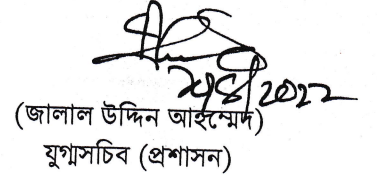 ২০২২
(জালাল উদ্দিন আহম্মেদ)
যুগ্মসচিব (প্রশাসন)